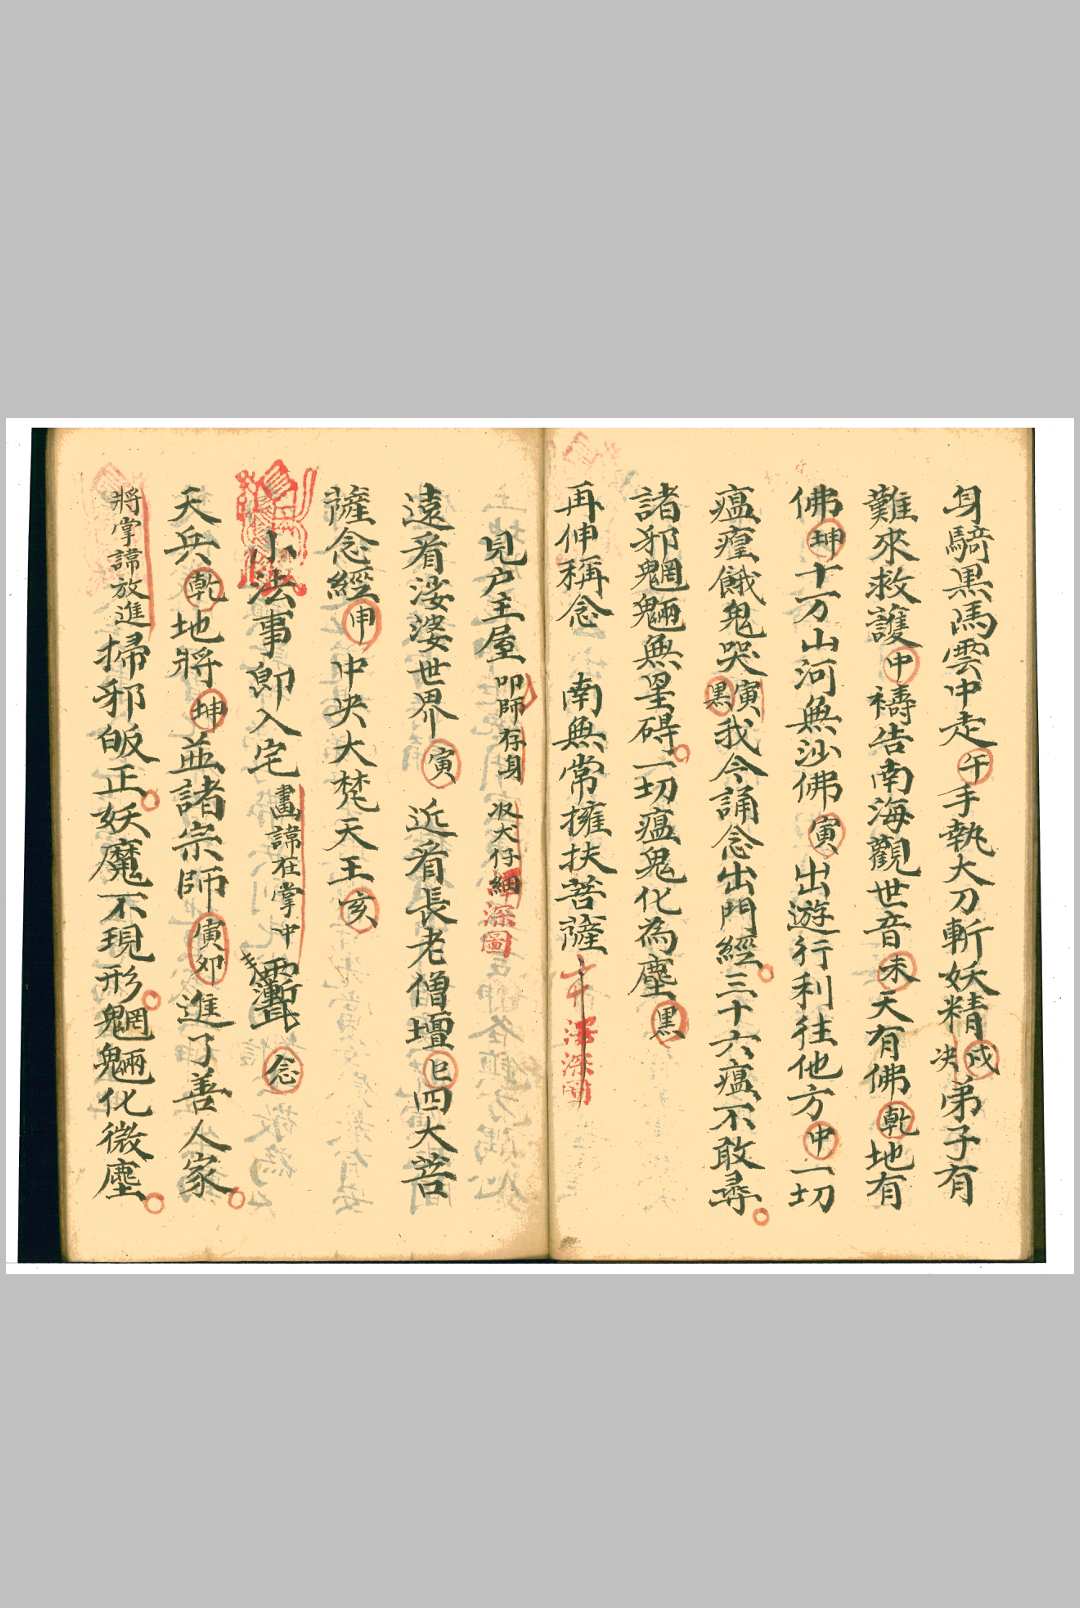 身騎黑馬雲中走午手執大刀斬妖精戌决弟子有
難來救護中禱告南海觀世音未天有佛乾地有
佛坤十万山河無沙佛寅出遊行利往他方中一切
瘟㾮餓鬼哭寅黑我今誦念出門經三十六瘟不敢尋
諸邪魍魎無罣碍一切瘟鬼化為塵黑
再伸稱念 南無常擁扶菩薩
見户主屋叩師存身収犬仔細深圖
遠看娑婆世界寅 近看長老僧壇巳四大菩
薩念經申 中央大梵天王亥
小法事即入宅畫諱在掌中 念
天兵乾地將坤並諸宗師寅卯進了善人家
將掌諱放進掃邪皈正妖魔不現形魍魎化微塵